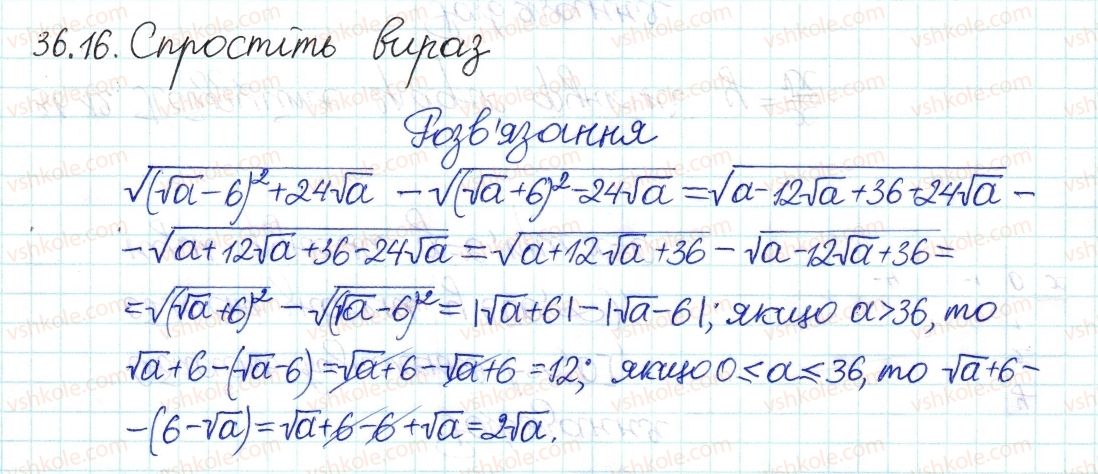 36.16. Спростіть вираз
Розв'язання
√((√a-6)²+24√a) - √((√a+6)²-24√a) = √(a-12√a+36+24√a) -
- √(a+12√a+36-24√a) = √(a+12√a+36) - √(a-12√a+36) =
= √((√a+6)²) - √((√a-6)²) = |√a+6| - |√a-6|; якщо a>36, то
√a+6-(√a-6) = √a+6-√a+6 = 12; якщо 0≤a≤36, то √a+6-
-(6-√a) = √a+6-6+√a = 2√a.